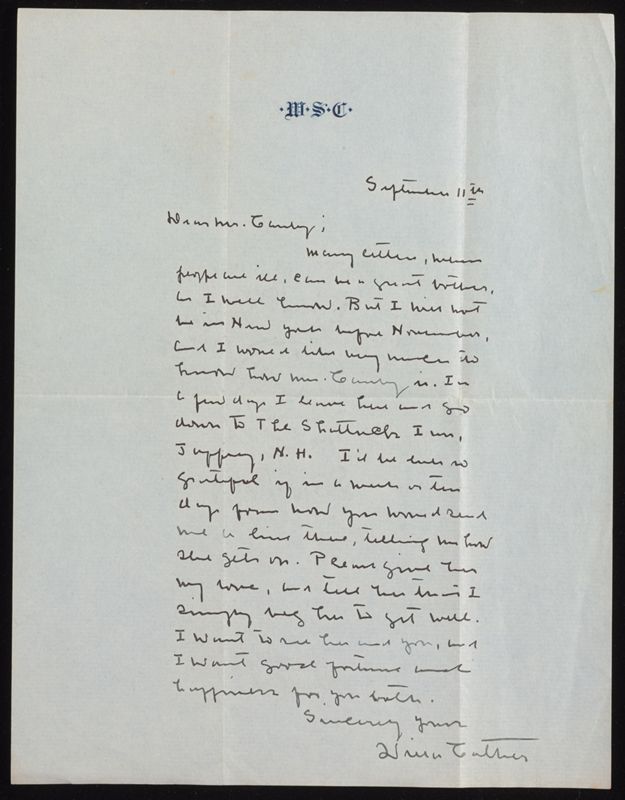 ·W·S·C·
September 11th
Dear Mr. Canby;
Many letters, when
people are ill, can be a great bother,
as I well know. But I will not
be in New York before November,
and I would like very much to
know how Mrs. Canby is. In
a few days I leave here and go
down to The Shattuck Inn,
Jaffrey, N.H. I'd be ever so
grateful if in a week or ten
days from now you would send
me a line there, telling me how
she gets on. Please give her
my love, and tell her that I
simply beg her to get well.
I want to see her and you, and
I want good fortune and
happiness for you both.
Sincerely yours
Willa Cather